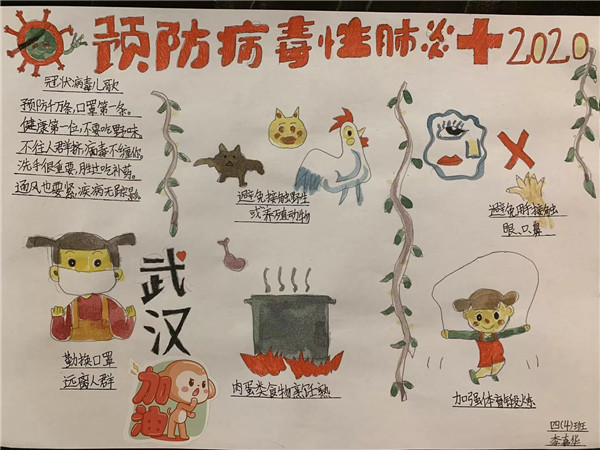 预防病毒性肺炎 2020
冠状病毒儿歌
预防千万条,口罩第一条。
健康第一位,不要吃野味。
不住人群挤,病毒不缠你。
洗手很重要,胜过吃补药。
通风也要紧,疾病无踪影。
避免接触野生
或养殖动物
避免用手接触
眼、口、鼻
勤换口罩
远离人群
武汉
加油
肉蛋类食物烹饪熟
加强体育锻炼
四(4)班
李嘉华